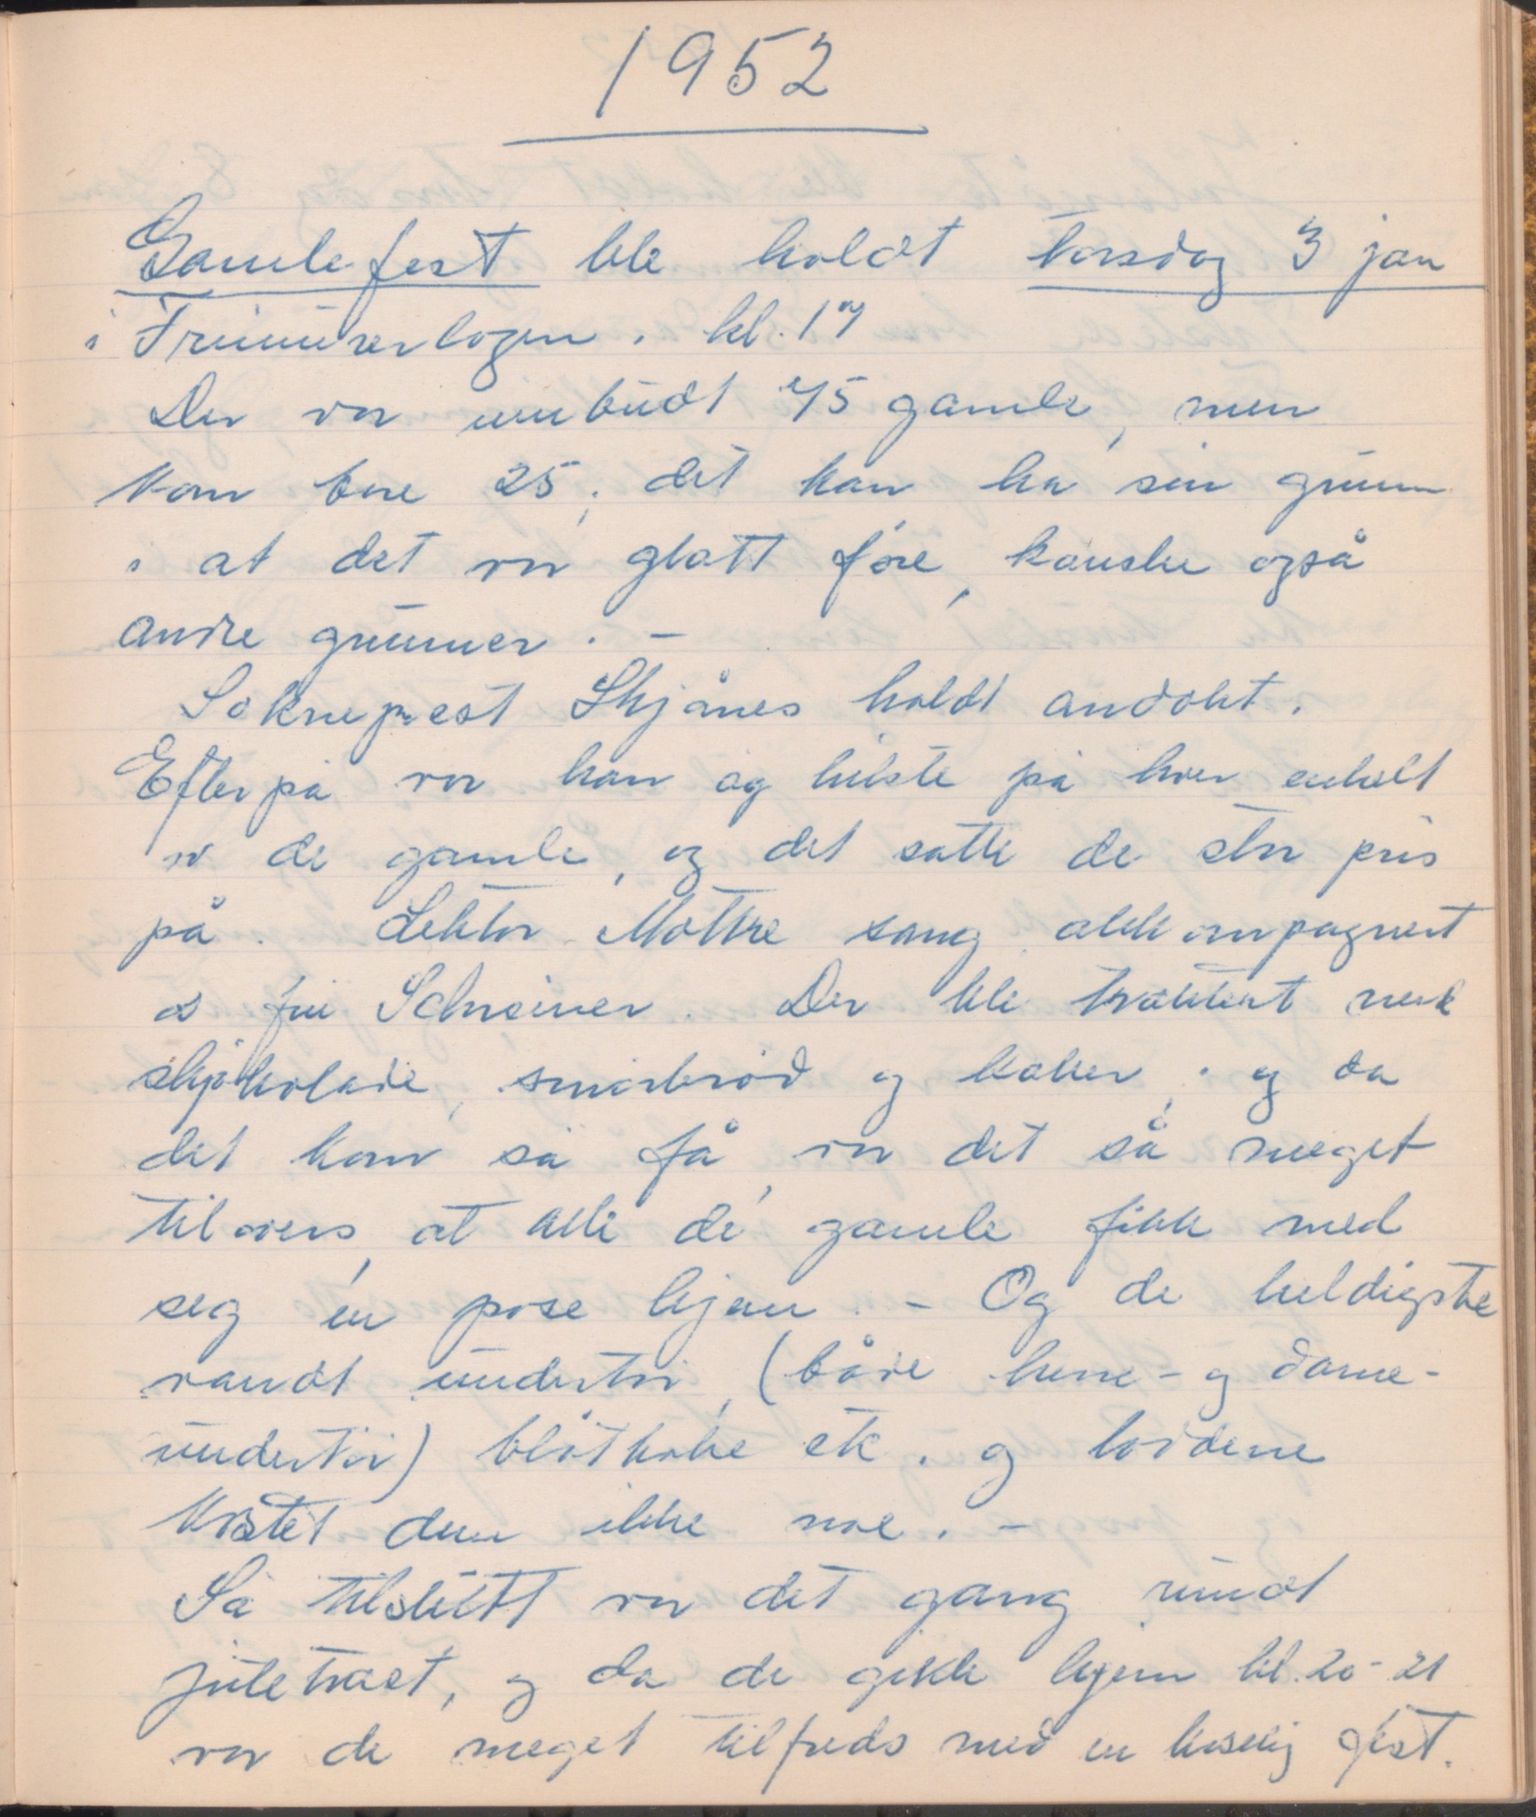 1952
Gamlefest ble holdt torsdag 3 jan
i Frimurerlogen. kl. 17
Der var innbudt 75 gamle, men
kom bare 25, det kan ha sin grunn
i at det var glatt føre, kanskje også
andre grunner. –
Sokneprest Skjånes holdt andakt.
Efterpå var han og hilste på hver enkelt
av de gamle, og det satte de stor pris
på. Lektor Møkkre sang akkompagnert
av fru Schreiner. Der ble traktert med
skjokolade, smørbrød og kaker, og da
det kom så få, var det så meget
tilovers, at alle de gamle fikk med
seg en pose hjem. – Og de heldigste
vandt undertøi, (både herre- og dame-
undertøi) bløtkake etc. og loddene
kostet dem ikke noe. –
Så tilslutt var det gang rundt
juletræet, og da de gikk hjem kl. 20-21
var de meget tilfreds med en koselig fest.